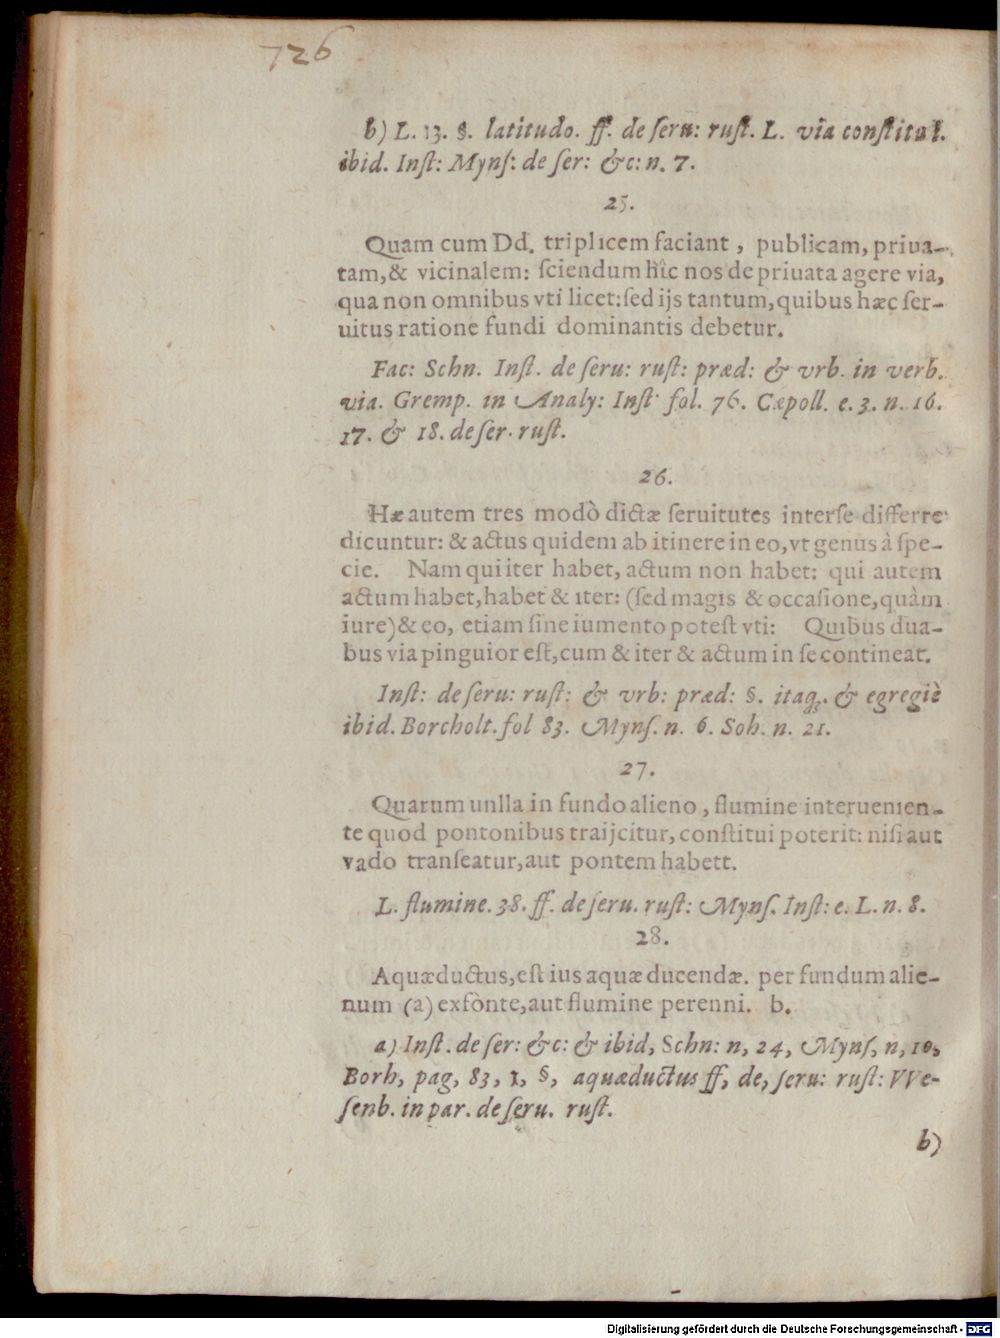 726
b) L. 13. §. latitudo. ff. de ſeru: ruſt. L. via conſtitui.
ibid. Inſt: Mynſ: de ſer: &c: n. 7.
25.
Quam cum Dd. triplicem faciant, publicam, priua-
tam, & vicinalem: ſciendum hîc nos de priuata agere via,
qua non omnibus vti licet: ſed ijs tantum, quibus hæc ſer-
uitus ratione fundi dominantis debetur.
Fac: Schn. Inſt. de ſeru: ruſt: præd: & vrb. in verb.
via. Gremp. in Analy: Inſt fol. 76. Cæpoll. e. 3. n. 16.
17. & 18. de ſer. ruſt.
26.
Hæ autem tres modò dictæ ſeruitutes interſe differre
dicuntur: & actus quidem ab itinere in eo, vt genus à ſpe-
cie. Nam qui iter habet, actum non habet: qui autem
actum habet, habet & iter: (ſed magis & occaſione, quàm
iure) & eo, etiam ſine iumento poteſt vti: Quibus dua-
bus via pinguior eſt, cum & iter & actum in ſe contineat.
Inſt: de ſeru: ruſt: & vrb: præd: §. itaq;. & egregiè
ibid. Borcholt. fol 83. Mynſ. n. 6. Soh. n. 21.
27.
Quarum unlla in fundo alieno, flumine interuenien-
te quod pontonibus traijcitur, conſtitui poterit: niſi aut
vado tranſeatur, aut pontem habett.
L. flumine. 38. ff. de ſeru. ruſt: Mynſ. Inſt: e. L. n. 8.
28.
Aquæductus, eſt ius aquæ ducendæ. per fundum alie-
num (a) exfònte, aut flumine perenni. b.
a) Inſt. de ſer: &c: & ibid, Schn: n, 24, Mynſ, n, 10,
Borh, pag, 83, 1, §, aquæductus ff, de, ſeru: ruſt: VVe-
ſenb. in par. de ſeru. ruſt.
b)
Digitalisierung gefördert durch die Deutsche Forschungsgemeinschaft - DFG